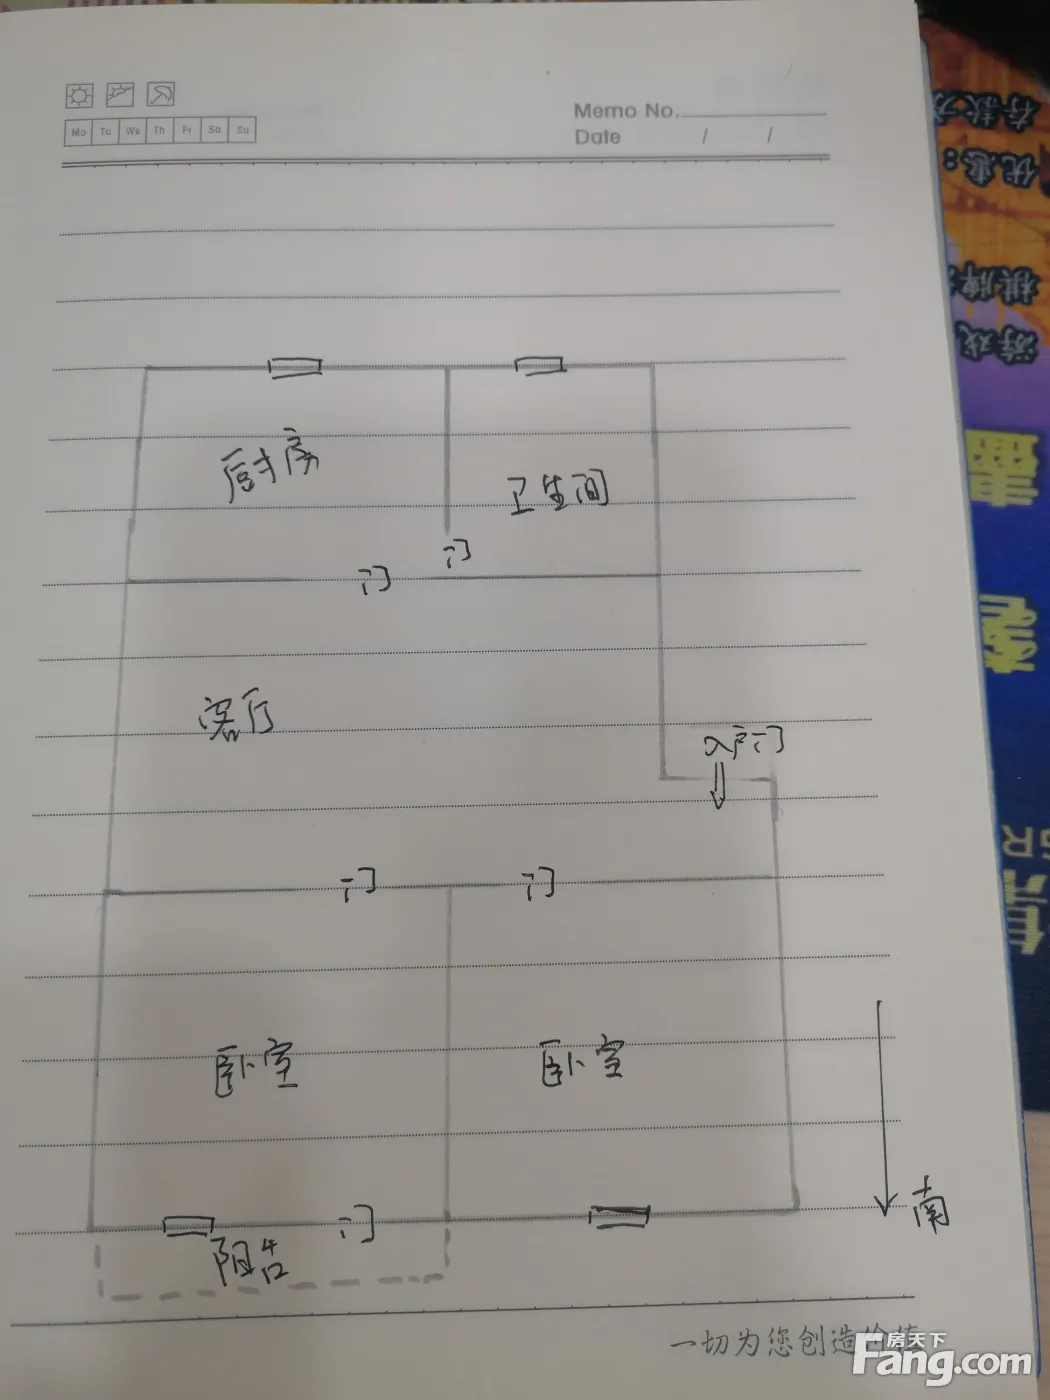 Memo No.
Mo Tu We Th Fr Sa Su
Date / /
厨房
卫生间
门
门
客厅
入户门
门
门
卧室
卧室
南
门
阳台
一切为您创造价值
房天下
Fang.com
存款
优惠：
棋牌
游戏